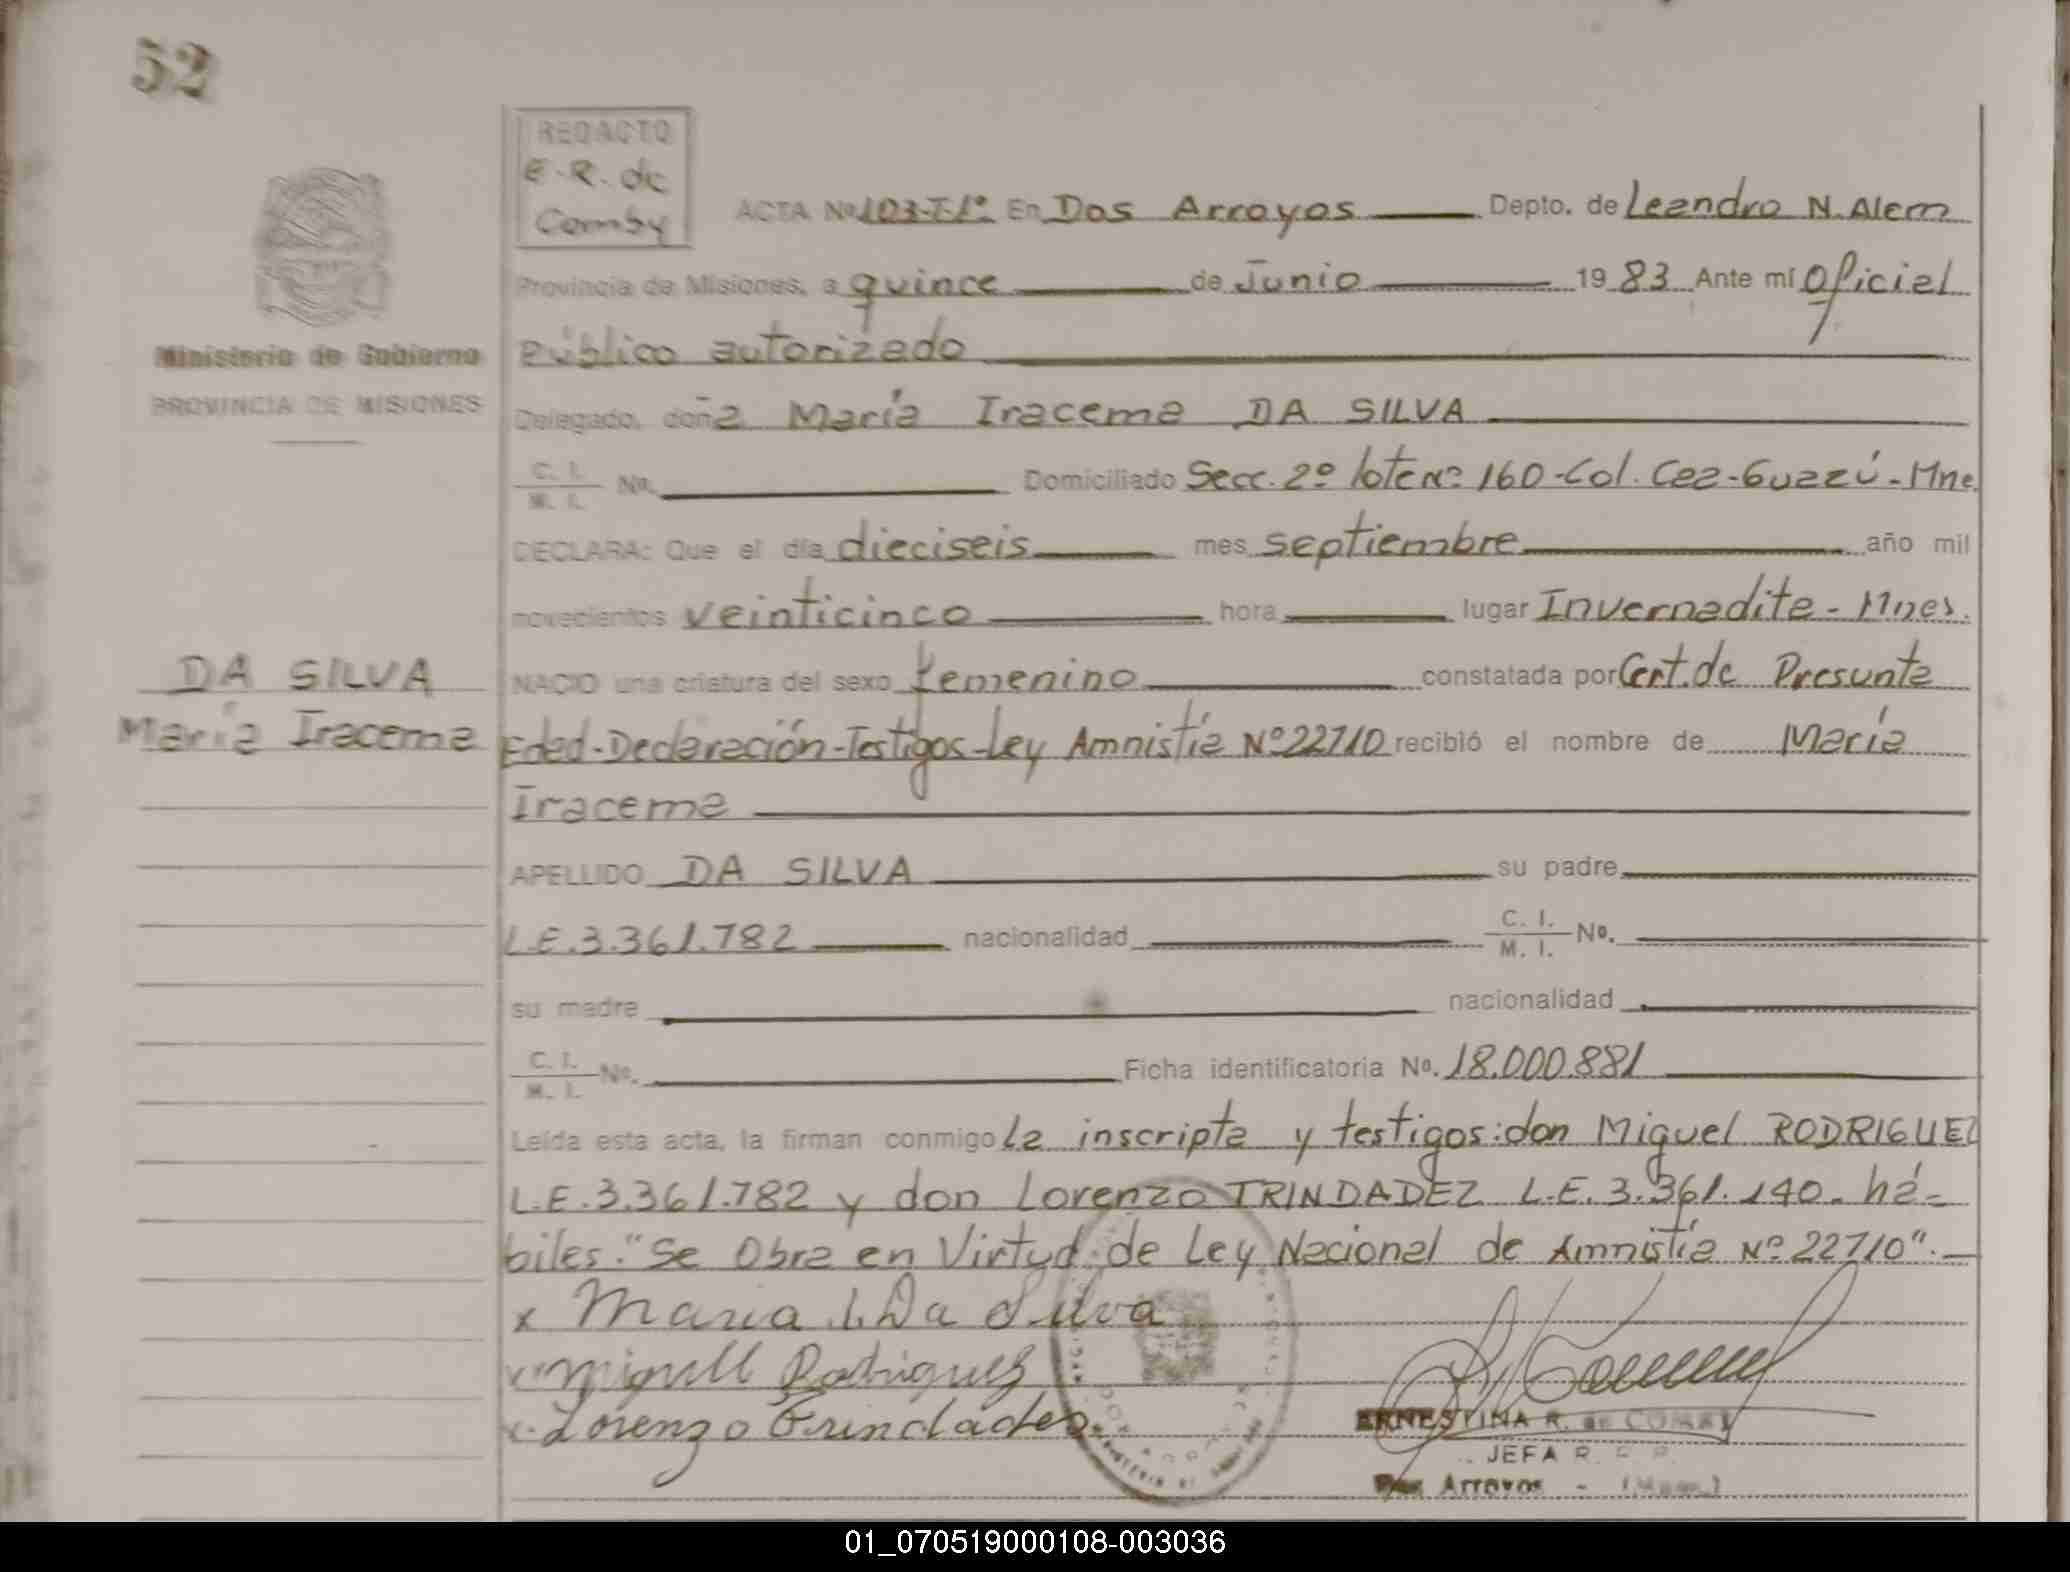 52
REDACTO
E.R. de
Comby
ACTA Nº 103-T-1º En Dos Arroyos Depto. de Leandro N. Alem
Provincia de Misiones, a quince de Junio 1983 Ante mí Oficial
Público autorizado
Ministerio de Gobierno
PROVINCIA DE MISIONES
Delegado, doña María Iracema DA SILVA
C. I.
M. I. Nº. Domiciliado Secc. 2º lote Nº 160-Col. Caa-Guazú-Mne.
DECLARA: Que el día dieciseis mes septiembre año mil
novecientos veinticinco hora lugar Invernadita - Mnes.
DA SILVA
María Iracema
NACIO una criatura del sexo femenino constatada por Cert. de Presunta
Edad-Declaración-Testigos-Ley Amnistía Nº 22710 recibió el nombre de María
Iracema
APELLIDO DA SILVA su padre
L.E.3.361.782 nacionalidad C. I.
M. I. Nº.
su madre nacionalidad
C. I.
M. I. Nº. Ficha identificatoria Nº. 18.000.881
Leída esta acta, la firman conmigo la inscripta y testigos: don Miguel RODRIGUEZ
L.E.3.361.782 y don Lorenzo TRINDADEZ L.E. 3.361.140- há-
biles. "Se Obra en Virtud de Ley Nacional de Amnistía Nº 22710".-
x Maria I. Da Silva
Miguell Rodriguez
x Lorenzo Trindadez
ERNESTINA R. de COMBY
JEFA R.
Dos Arroyos -
01_070519000108-003036